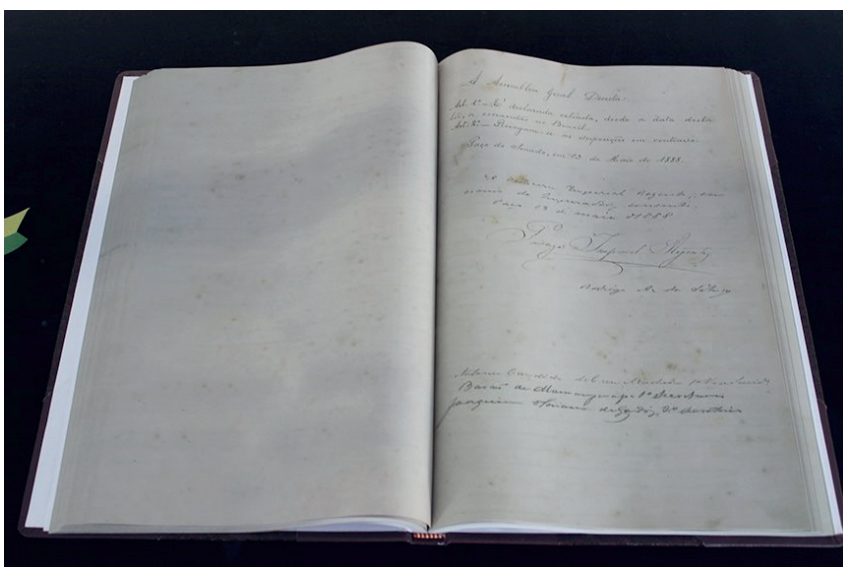 A Assemblea Geral Decreta:
Art. 1º - É declarada extincta, desde a data desta
lei, a escravidão no Brazil.
Art. 2º - Revogam-se as disposições em contrario.
Paço do Senado, em 13 de Maio de 1888.
Imperial Regente, em
nome do Imperador, consente.
Paço 13 de maio de 1888
Princeza Imperial Regente
Rodrigo A. da Silva
Antonio Candido da Cruz Machado 1º Vice
Barão de Mamanguape 1º Secretario
Joaquim Floriano de Godoy, 2º Secretario